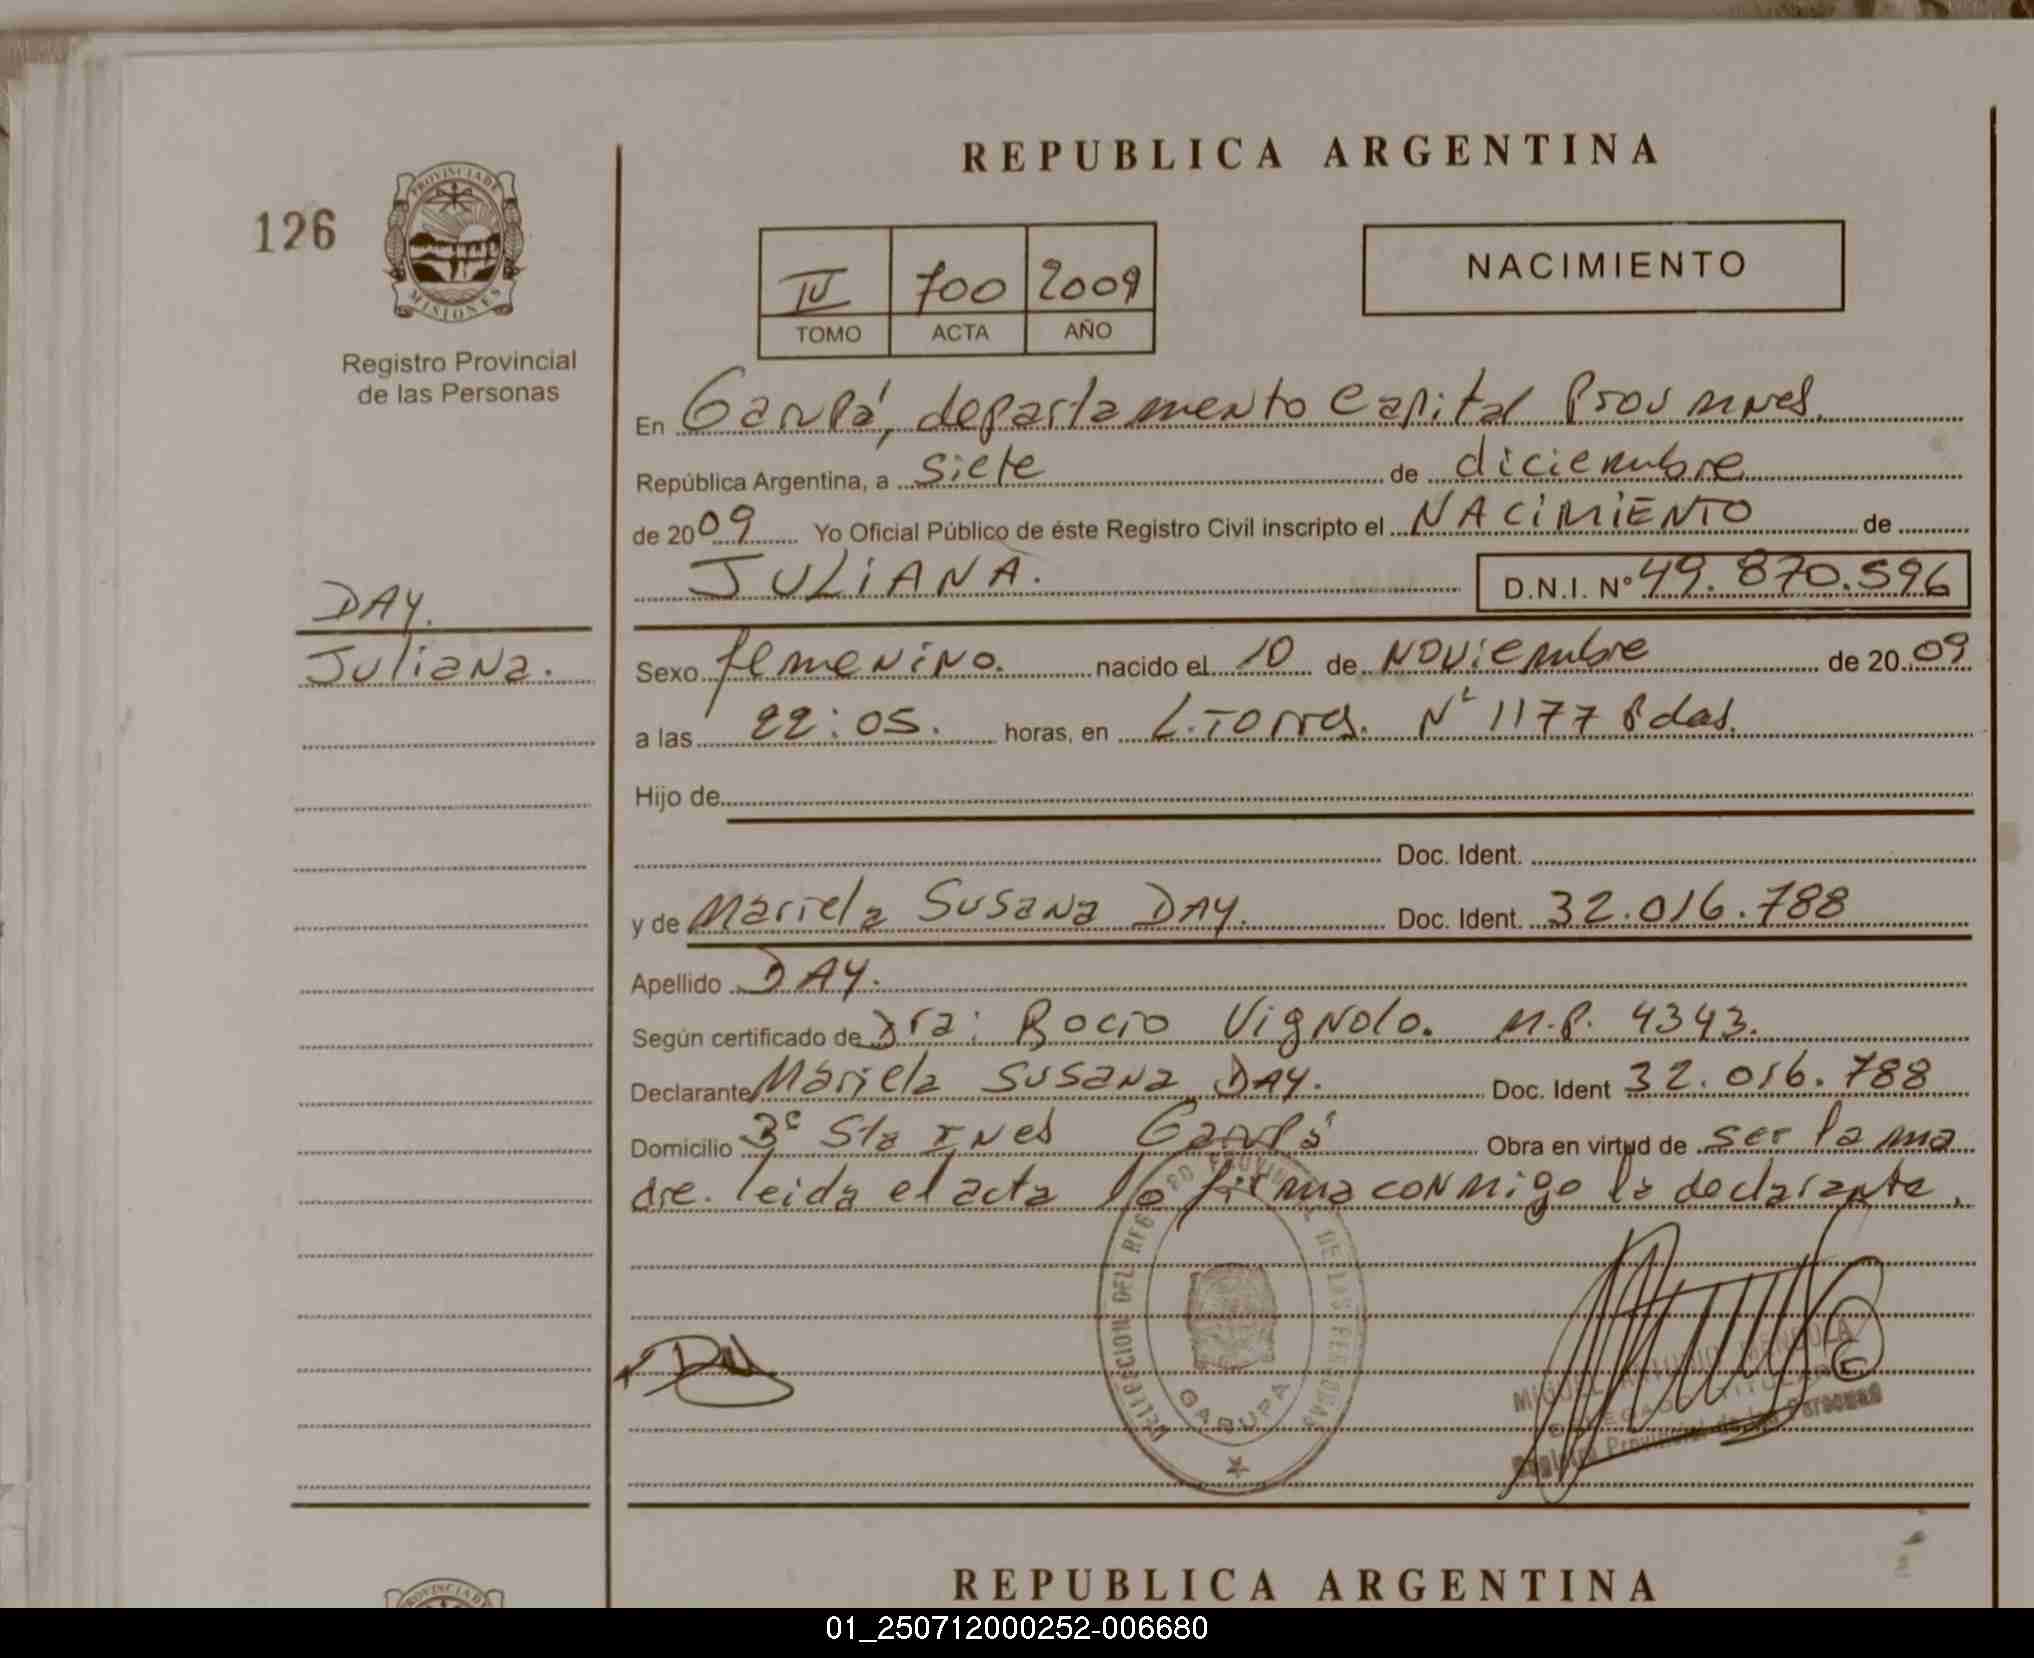 REPUBLICA ARGENTINA
126
PROVINCIA DE
MISIONES
Registro Provincial
de las Personas
IV 700 2009
TOMO ACTA AÑO
NACIMIENTO
En Garupá, departamento Capital Prov Mnes.
República Argentina, a siete de diciembre
de 2009 Yo Oficial Público de éste Registro Civil inscripto el NACIMIENTO de
JULIANA. D.N.I. Nº 49.870.596
DAY.
Juliana.
Sexo femenino. nacido el 10 de noviembre de 2009
a las 22:05. horas, en L. Torres. Nº 1177 Pdas.
Hijo de
Doc. Ident.
y de Mariela Susana DAY. Doc. Ident. 32.016.788
Apellido DAY.
Según certificado de Dra: Rocio Vignolo. M.P. 4343.
Declarante Mariela Susana DAY. Doc. Ident 32.016.788
Domicilio 3º Sta Ines Garupá Obra en virtud de ser la ma
dre. leida el acta la firma conmigo la declarante.
DELEGACION DEL REGISTRO PROVINCIAL DE LAS PERSONAS
GARUPA
MIGUEL ANTONIO MENDOZA
DELEGADO TITULAR
Registro Provincial de las Personas
REPUBLICA ARGENTINA
PROVINCIA DE
01_250712000252-006680